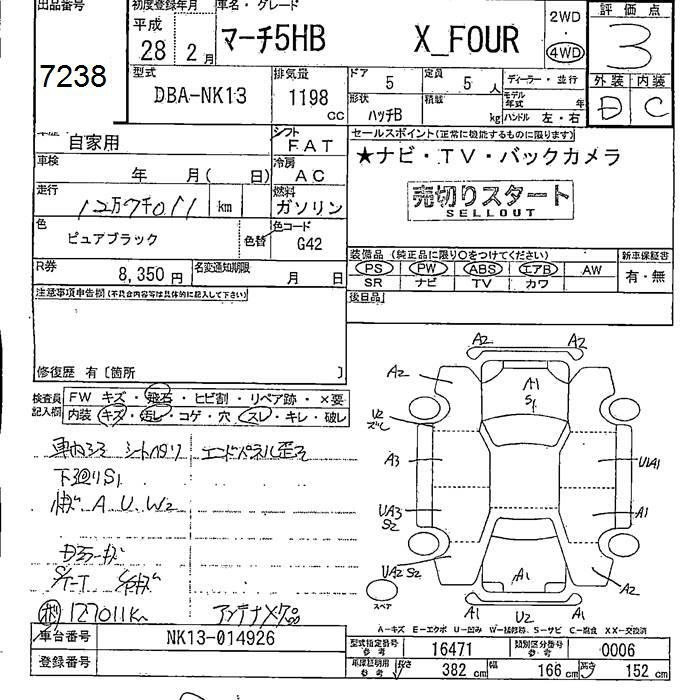 出品番号
7238
初度登録年月
平成
28 2 月
車名・グレード
マーチ5HB X_FOUR
2WD
4WD
評価点
3
外装 内装
D C
型式
DBA-NK13
排気量
1198
CC
ドア
5
定員
5 人
ディーラー・並行
形状
ハッチB
積載
kg
モデル
年式 年
ハンドル 左・右
車歴
自家用
シフト
FAT
車検
年 月( 日)
冷房
AC
走行
12万7千011 km
燃料
ガソリン
色
ピュアブラック
色替
色コード
G42
R券
8,350 円
名変通知期限
月 日
セールスポイント(正常に機能するものに限ります)
★ナビ・TV・バックカメラ
売切りスタート
SELLOUT
装備品 (純正品に限り○をつけてください)
新車保証書
PS PW ABS エアB AW
SR ナビ TV カワ
有・無
後日品
注意事項申告欄(不具合内容等は具体的に記入して下さい)
修復歴 有〔箇所 〕
検査員
記入欄
FW キズ・飛石・ヒビ割・リペア跡・×要
内装 キズ・汚レ・コゲ・穴・スレ・キレ・破レ
シートヘタリ エンドパネル歪み
下廻りS1
A U W2
127011km
アンテナ欠品
車台番号 NK13-014926
登録番号
A2 A2
A2
A1
S1
U2
ズレ
A3
U1A1
UA3
S2
A1
UA2 S2
A1
A2
スペア
A1 U2 A1
A-キズ E-エクボ U-凹み W-補修跡 S-サビ C-腐食 XX-交換済
型式指定番号
参考
16471
類別区分番号
参考
0006
車庫証明用
参考
長さ 382 cm 幅 166 cm 高さ 152 cm